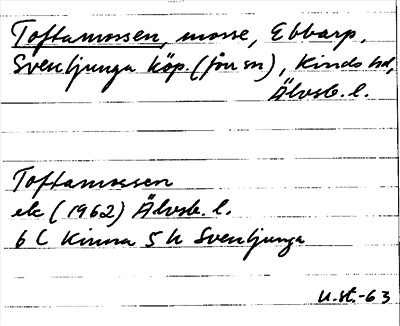 Toftamossen, mosse, Ebbarp,
Svenljunga köp. (förs:n), Kinds hd,
Älvsb. l.
Toftamossen
ek (1962) Älvsb. l.
6 C Kinna 5 h Svenljunga
U.st.-63